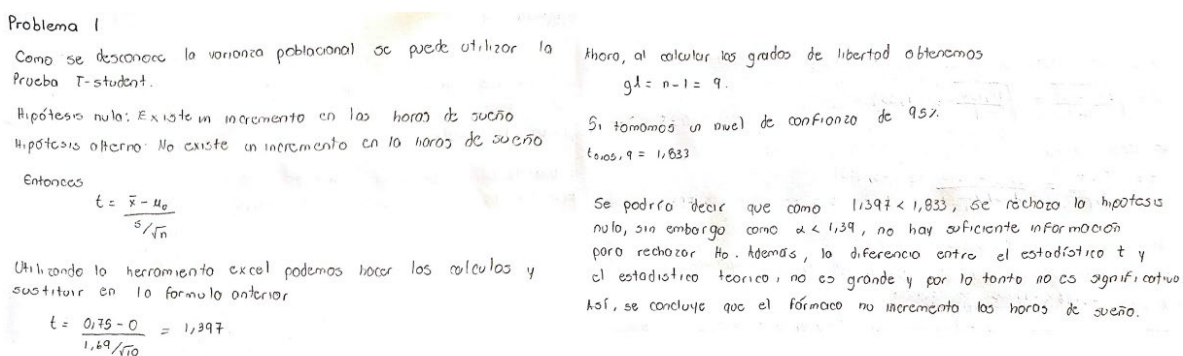 Problema 1
Como se desconoce la varianza poblacional se puede utilizar la
Prueba T-student.
Hipótesis nula: Existe un incremento en las horas de sueño
Hipótesis alterna: No existe un incremento en la horas de sueño
Entonces
t = x̄ - μ₀ / s/√n
Utilizando la herramienta excel podemos hacer los calculos y
sustituir en la formula anterior
t = 0,75 - 0 / 1,69/√10 = 1,397
Ahora, al calcular los grados de libertad obtenemos
gl = n-1 = 9.
Si tomamos un nivel de confianza de 95%.
t0,05, 9 = 1,833
Se podría decir que como 1,397 < 1,833, se rechaza la hipotesis
nula, sin embargo como α < 1,39, no hay suficiente información
para rechazar Ho. Además, la diferencia entre el estadístico t y
el estadistico teorico, no es grande y por lo tanto no es significativo
Así, se concluye que el fármaco no incrementa las horas de sueño.